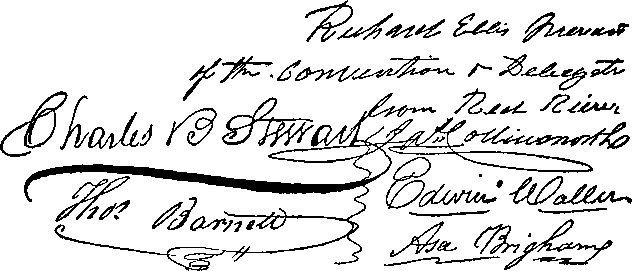 Richard Ellis President
of the Convention & Delegate
from Red River
Charles B Stewart
Jas Collinsworth
Edwin Waller
Thos Barnett
Asa Brigham